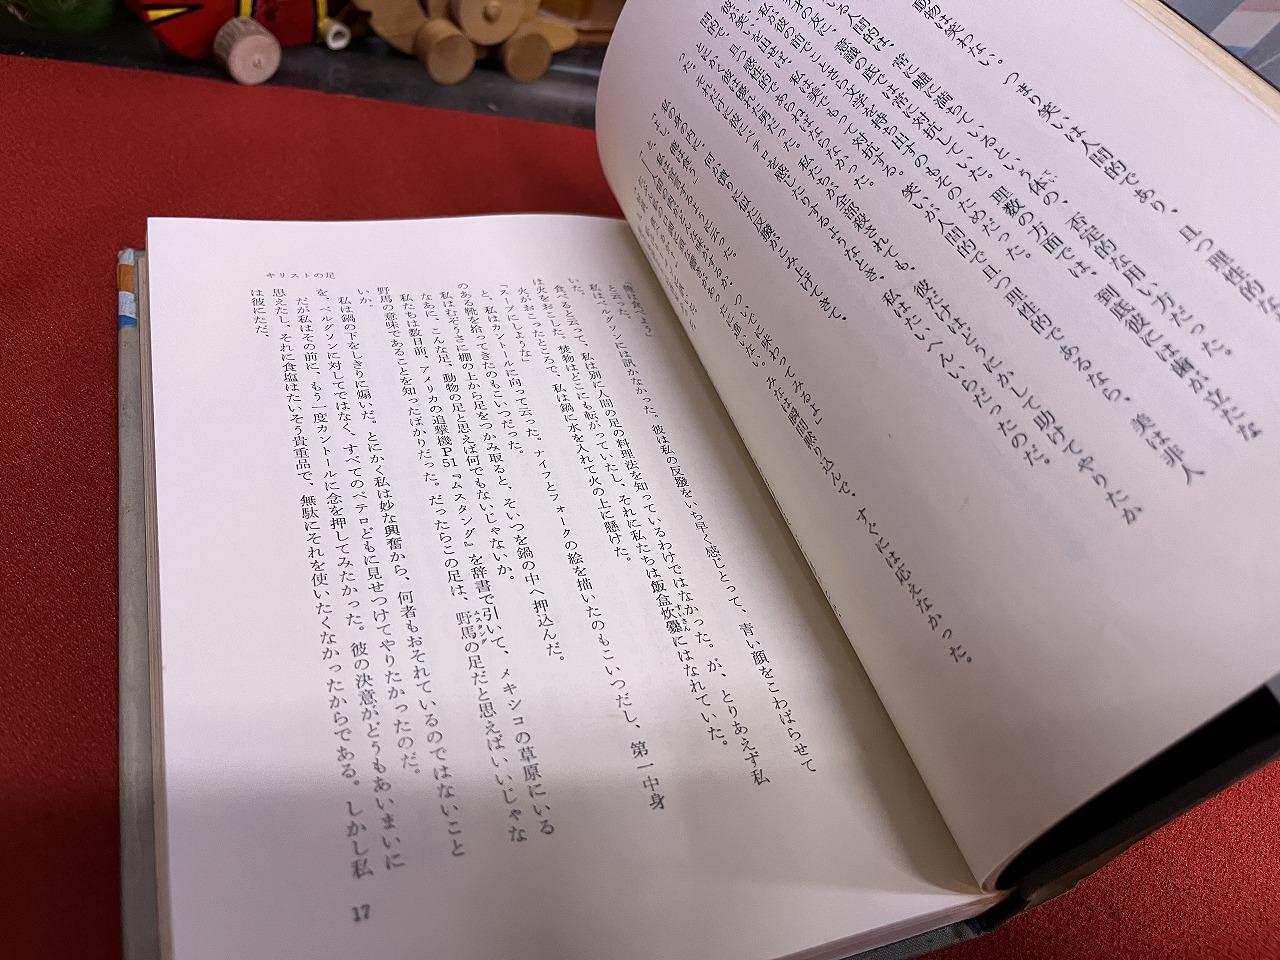 動物は笑わない。つまり笑いは人間的であり、且つ理性的
間的で、且つ感性的であらねばならなかった。
とにかく、彼は優れた男だった。私たちが全部殺されても、彼だけはどうにかして助けてやりたか
った。それだけに彼にペテロを感じたりするようなとき、私はたいへんいらだったのだ。
私の身の内に、何か憤りに似た反撥がこみ上げてきて、
「よし、俺は食う」
と、私は宣言するように云った。
「人間の肉がどんな味がするか、ついでに味わってみるよ」
みなは瞬間黙り込んで、すぐには応えなかった。
キリストの足
と云った。
私はベルグソンには訊かなかった。彼は私の反撥をいち早く感じとって、青い顔をこわばらせて
いた。
食べると云って、私は別に人間の足の料理法を知っているわけではなかった。が、とりあえず私
は火をおこした。焚物はどこにも転がっていたし、それに私たちは飯盒炊爨にはなれていた。
火がおこったところで、私は鍋に水を入れて火の上に懸けた。
「スープにしような」
と、私はカントールに向って云った。ナイフとフォークの絵を描いたのもこいつだし、第一中身
のある靴を拾ってきたのもこいつだった。
私はむぞうさに棚の上から足をつかみ取ると、そいつを鍋の中へ押込んだ。
なあに、こんな足、動物の足と思えば何でもないじゃないか。
私たちは数日前、アメリカの追撃機P51『ムスタング』を辞書で引いて、メキシコの草原にいる
野馬の意味であることを知ったばかりだった。だったらこの足は、野馬の足だと思えばいいじゃな
いか。
私は鍋の下をしきりに煽いだ。とにかく私は妙な興奮から、何者もおそれているのではないこと
を、ベルグソンに対してではなく、すべてのペテロどもに見せつけてやりたかったのだ。
だが私はその前に、もう一度カントールに念を押してみたかった。彼の決意がどうもあいまいに
思えたし、それに食塩はたいそう貴重品で、無駄にそれを使いたくなかったからである。しかし私
は彼にただ、
17